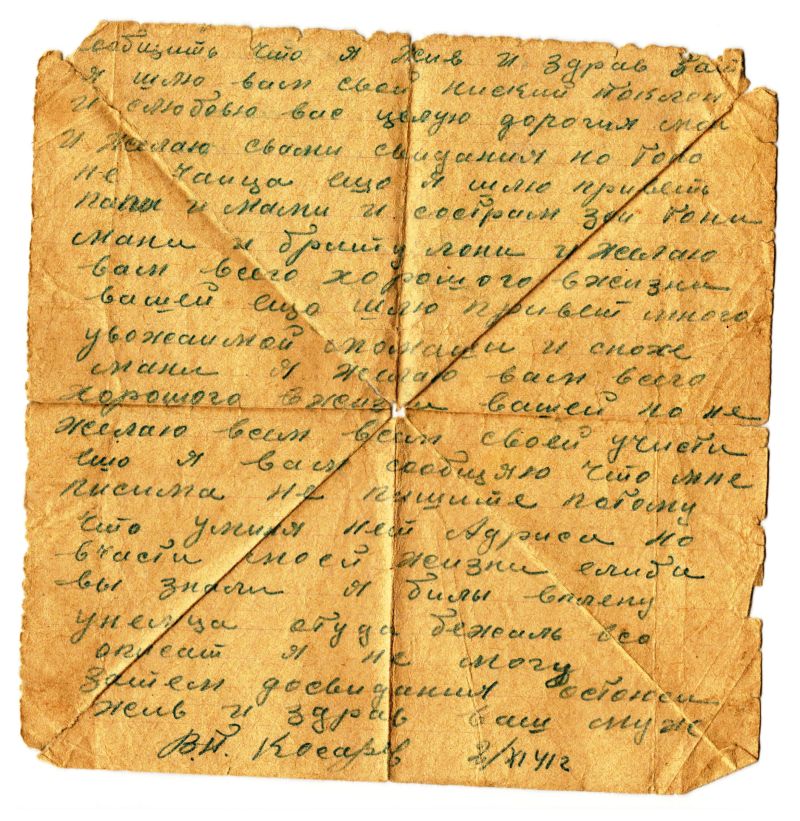 сообщить что я жив и здрав
я шлю вам свой ниский поклон
и слюбовю вас целую дорогия мои
и желаю свами свидания но того
не чаица ещо я шлю приветь
папи и мами и сострам зои тони
мани и брату лони и желаю
вам всего хорошого вжизни
вашей ещо шлю привет много
увожаимой мамаши и
мани я желаю вам всего
хорошого вжизни вашей но не
желаю всем всем своей участи
ещо я вам сообщяю что мне
писима не пищите потому
что умния нет Адриса но
вчасти моей жизни слиби
вы знали я билы вплену
унемца отуда бежаль всо
описат я не могу
затем досвидания остоюси
жив и здрав ваш муж
В.П. Косарев 2/XI 41г